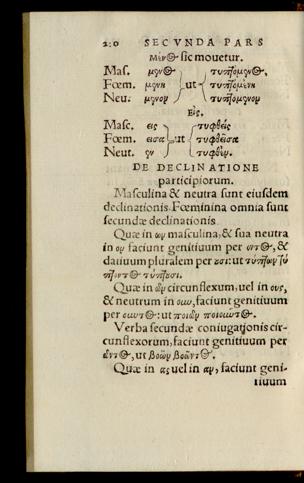 20 SECVNDA PARS
Μεν⊕ sic mouetur.
Mas. μην⊕ τυπτομην⊕.
Fœm. μηνη ut τυπτομένη
Neu. μηνον τυπτομηνον
Εις.
Masc. εις τυφθείς
Fœm. εισα ut τυφθεῖσα
Neut. εν τυφθεν.
DE DECLINATIONE
participiorum.
Masculina & neutra sunt eiusdem
declinationis. Fœminina omnia sunt
secundæ declinationis.
Quæ in ων masculina, & sua neutra
in ον faciunt genitiuum per οντ⊕, &
datiuum pluralem per ουσι: ut τύπτων τύ
πτοντ⊕ τύπτουσι.
Quæ in ῶν circunflexum, uel in ους,
& neutrum in ουν, faciunt genitiuum
per ουντ⊕: ut ποιῶν ποιουντ⊕.
Verba secundæ coniugationis cir-
cunflexorum, faciunt genitiuum per
ῶντ⊕, ut βοῶν βοῶντ⊕.
Quæ in ας uel in αν, faciunt geni-
tiuum